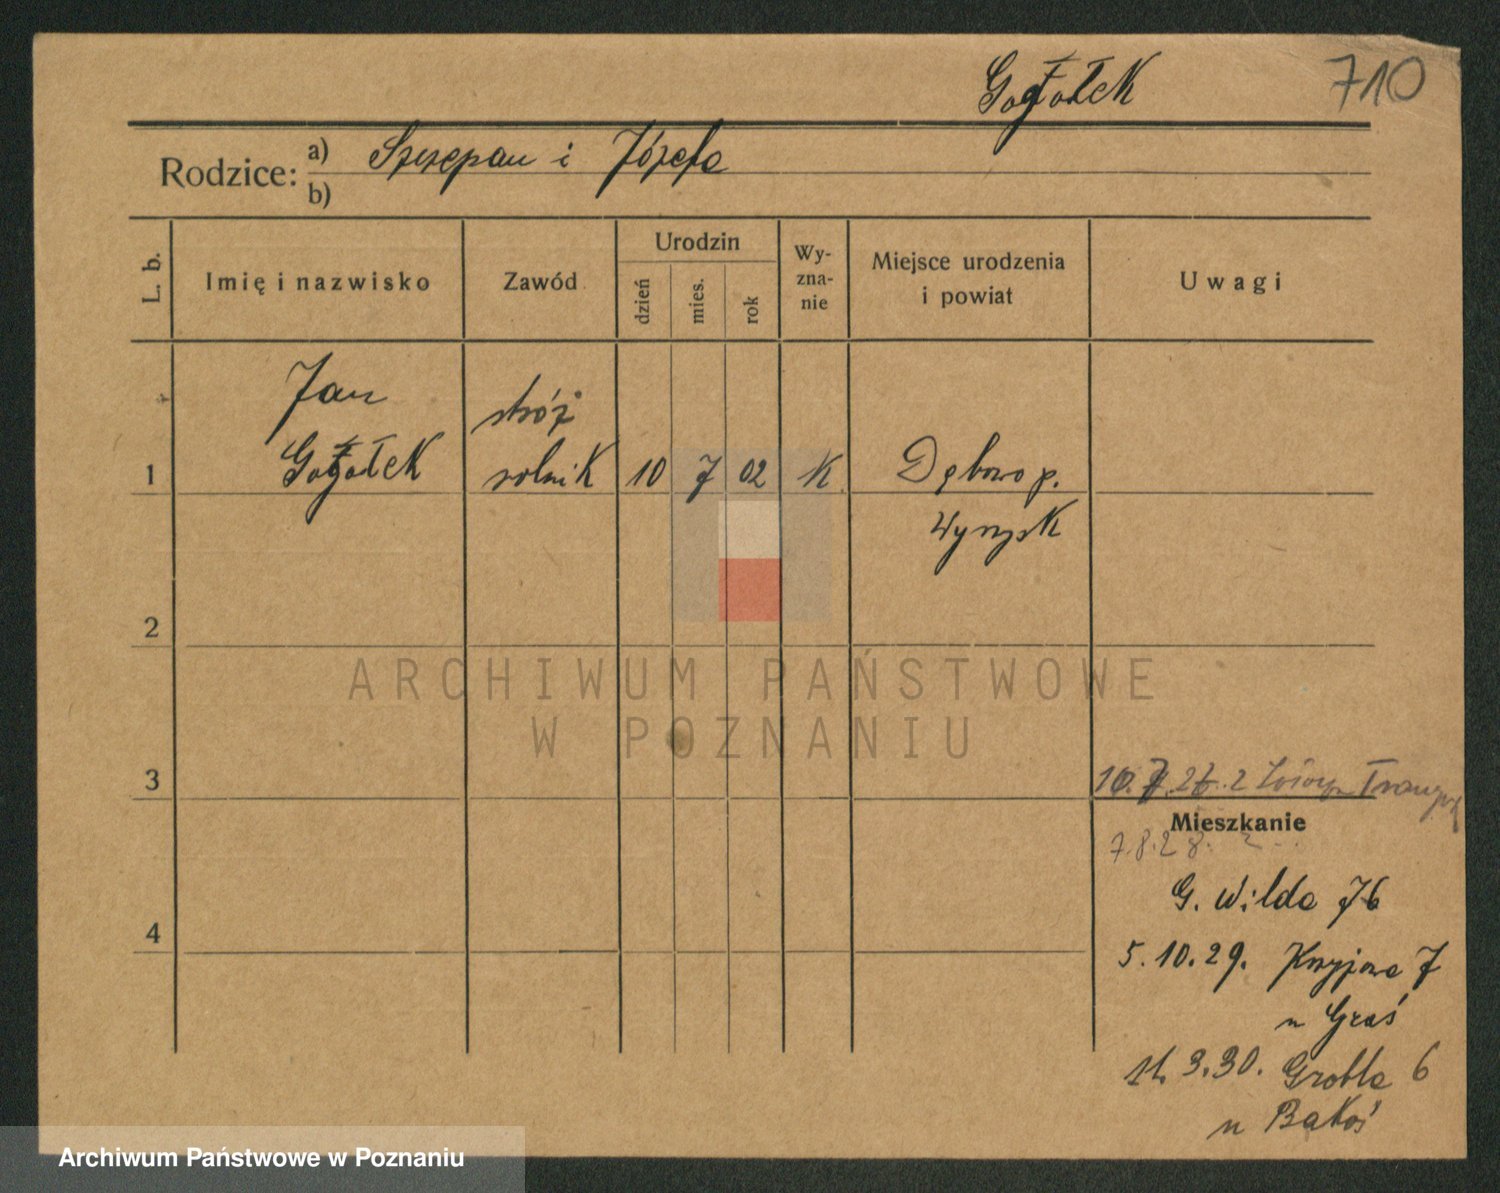 Gogołek 710
Rodzice: a) Szczepan i Józefa
b)
L. b.
Imię i nazwisko
Zawód
Urodzin
dzień
mies.
rok
Wy-
zna-
nie
Miejsce urodzenia
i powiat
Uwagi
Jan stróż
1 rolnik 10 7 02 K Dębowo p.
Wyrzysk
2
ARCHIWUM PAŃSTWOWE
W POZNANIU
3
Mieszkanie
7.8.28.
G. Wilda 76
4
5.10.29. Krzyżowa 7
u Graś
11.3.30. Grobla 6
u Bakoś
Archiwum Państwowe w Poznaniu